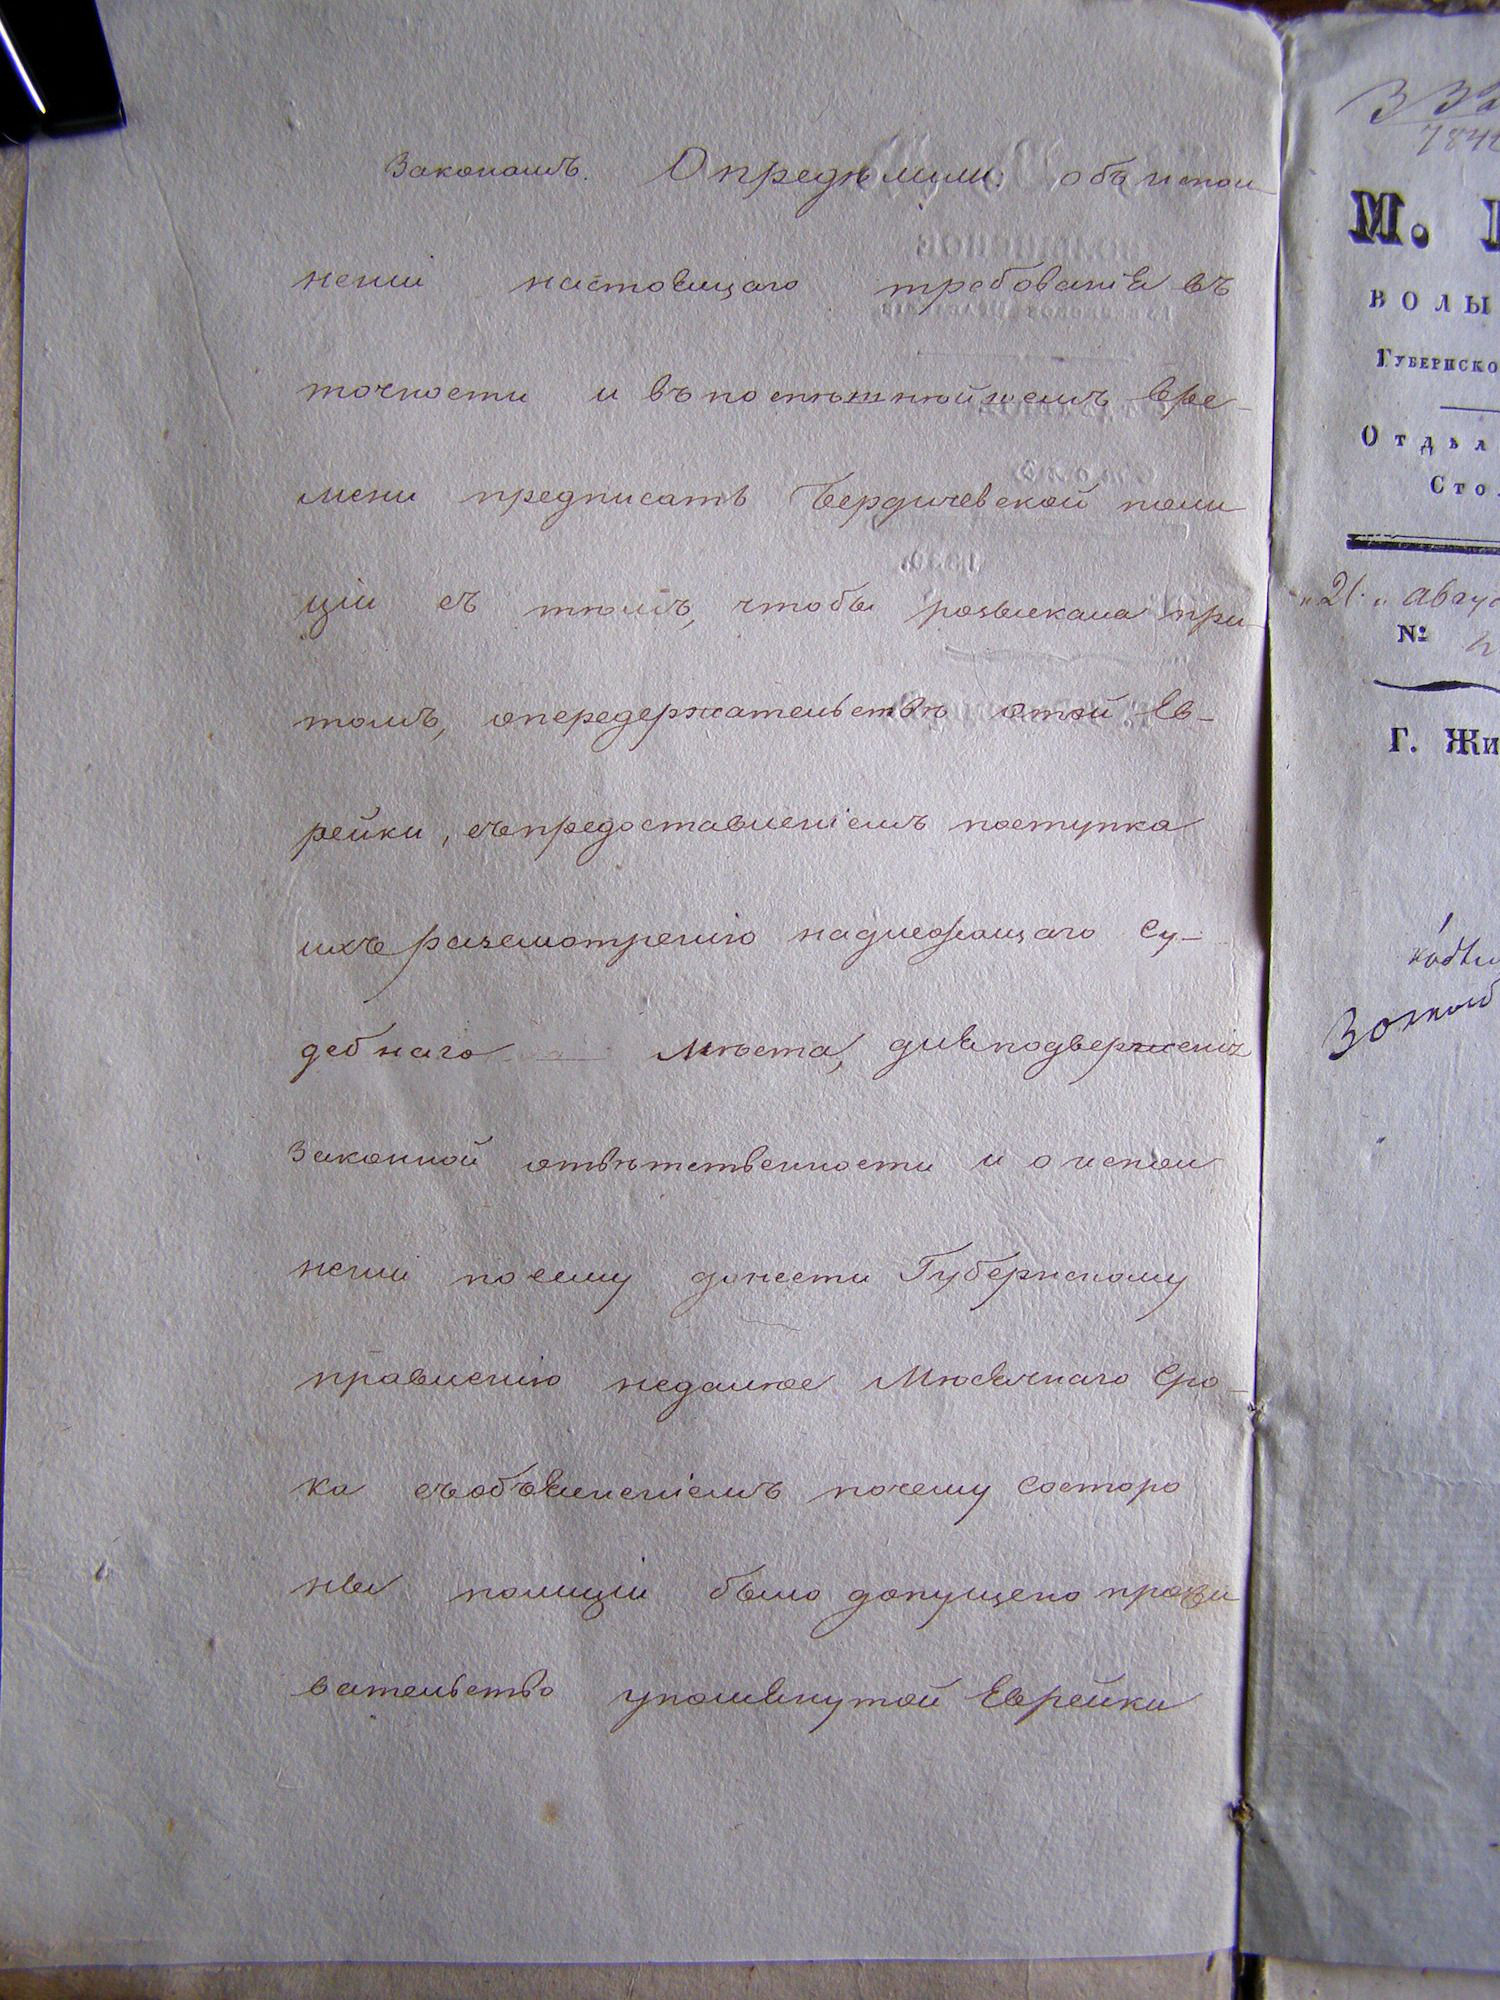 Законамъ. Опредѣлили: объ испол
неніи настоящаго требованія въ
точности и въ поспѣшнѣйшемъ вре-
мени предписать Бердичевской поли
ціи съ тѣмъ, чтобы розыскала при
томъ, опередержательствѣ этой Ев-
рейки, съ предоставленіемъ поступка
ихъ разсмотренію надлежащаго Су-
дебнаго Мѣста, для подверженія
Законной отвѣтственности и о испол
неніи посему донести Губернскому
правленію недалѣе Мѣсячнаго Сро-
ка съ объясненіемъ почему состоро
ны полиціи было допущено прожи
вательство упомянутой Еврейки
М.
ВОЛЫ
ГУБЕРНСКО
ОТДѢЛ
СТО
"21" Авгус
№
Г. ЖИ